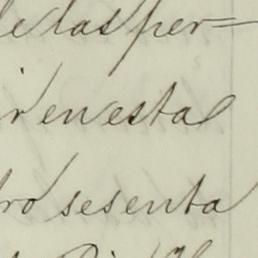 de las per=
ir en esta
tro sesenta